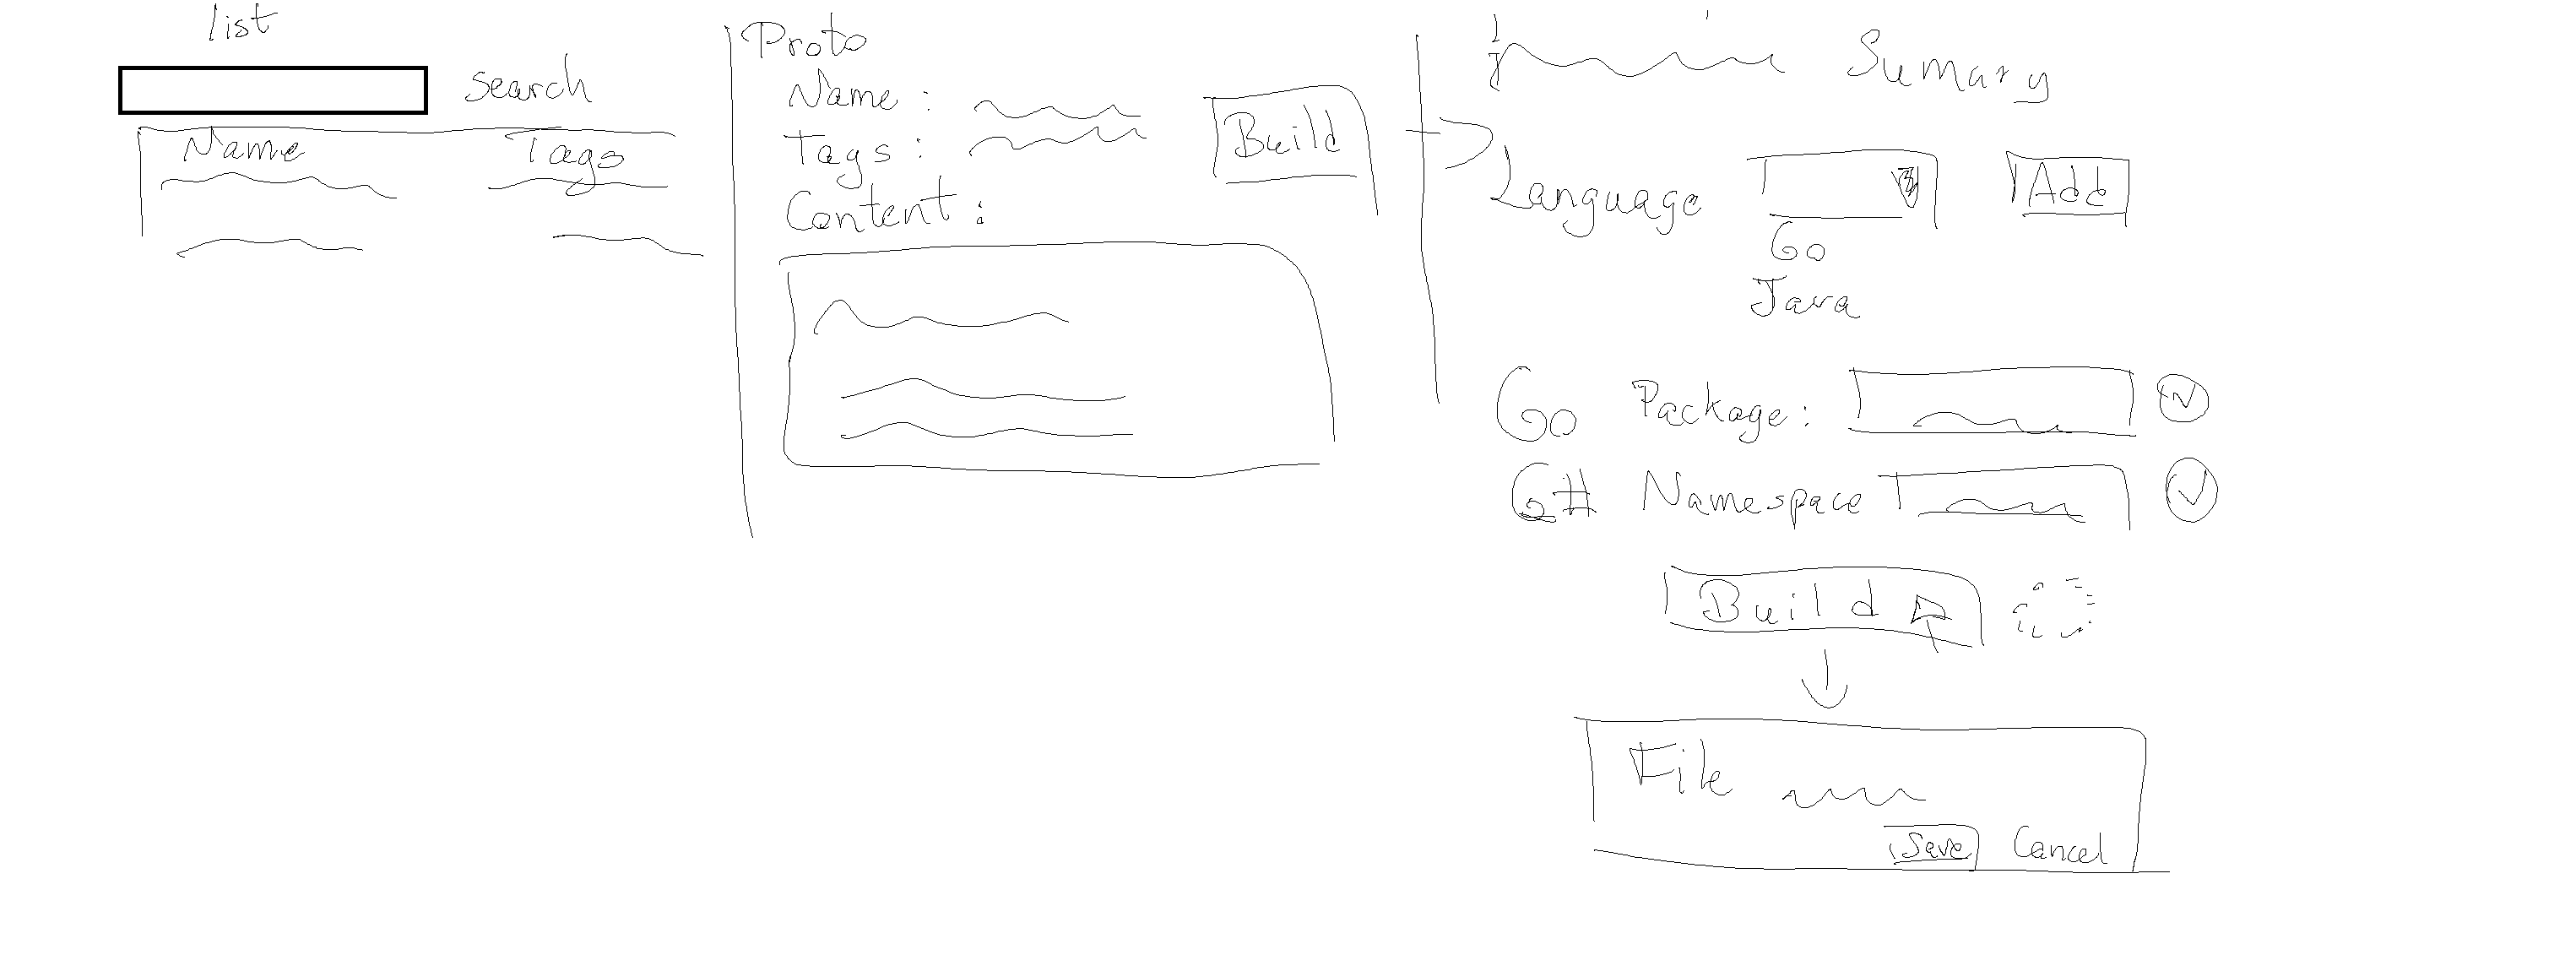 list
search
Name Tags
Proto
Name :
Tags :
Content :
Build
Sumary
Language Add
Go
Java
Go Package :
C# Namespace
Build
File
Save Cancel